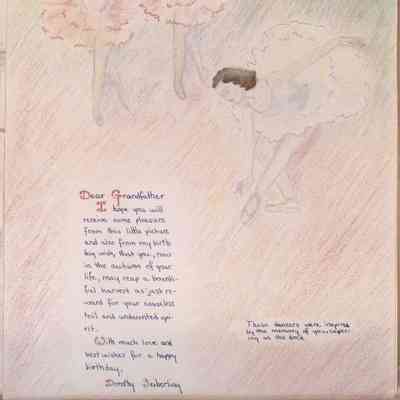 Dear Grandfather
I hope you will
receive some pleasure
from this little picture
and also from my birth
day wish, that you, now
in the autumn of your
life, may reap a beauti-
ful harvest as just re-
ward for your ceaseless
toil and undaunted spi-
rit.
With much love and
best wishes for a happy
birthday,
Dorothy
These dancers were inspired
by the memory of your
ing us the